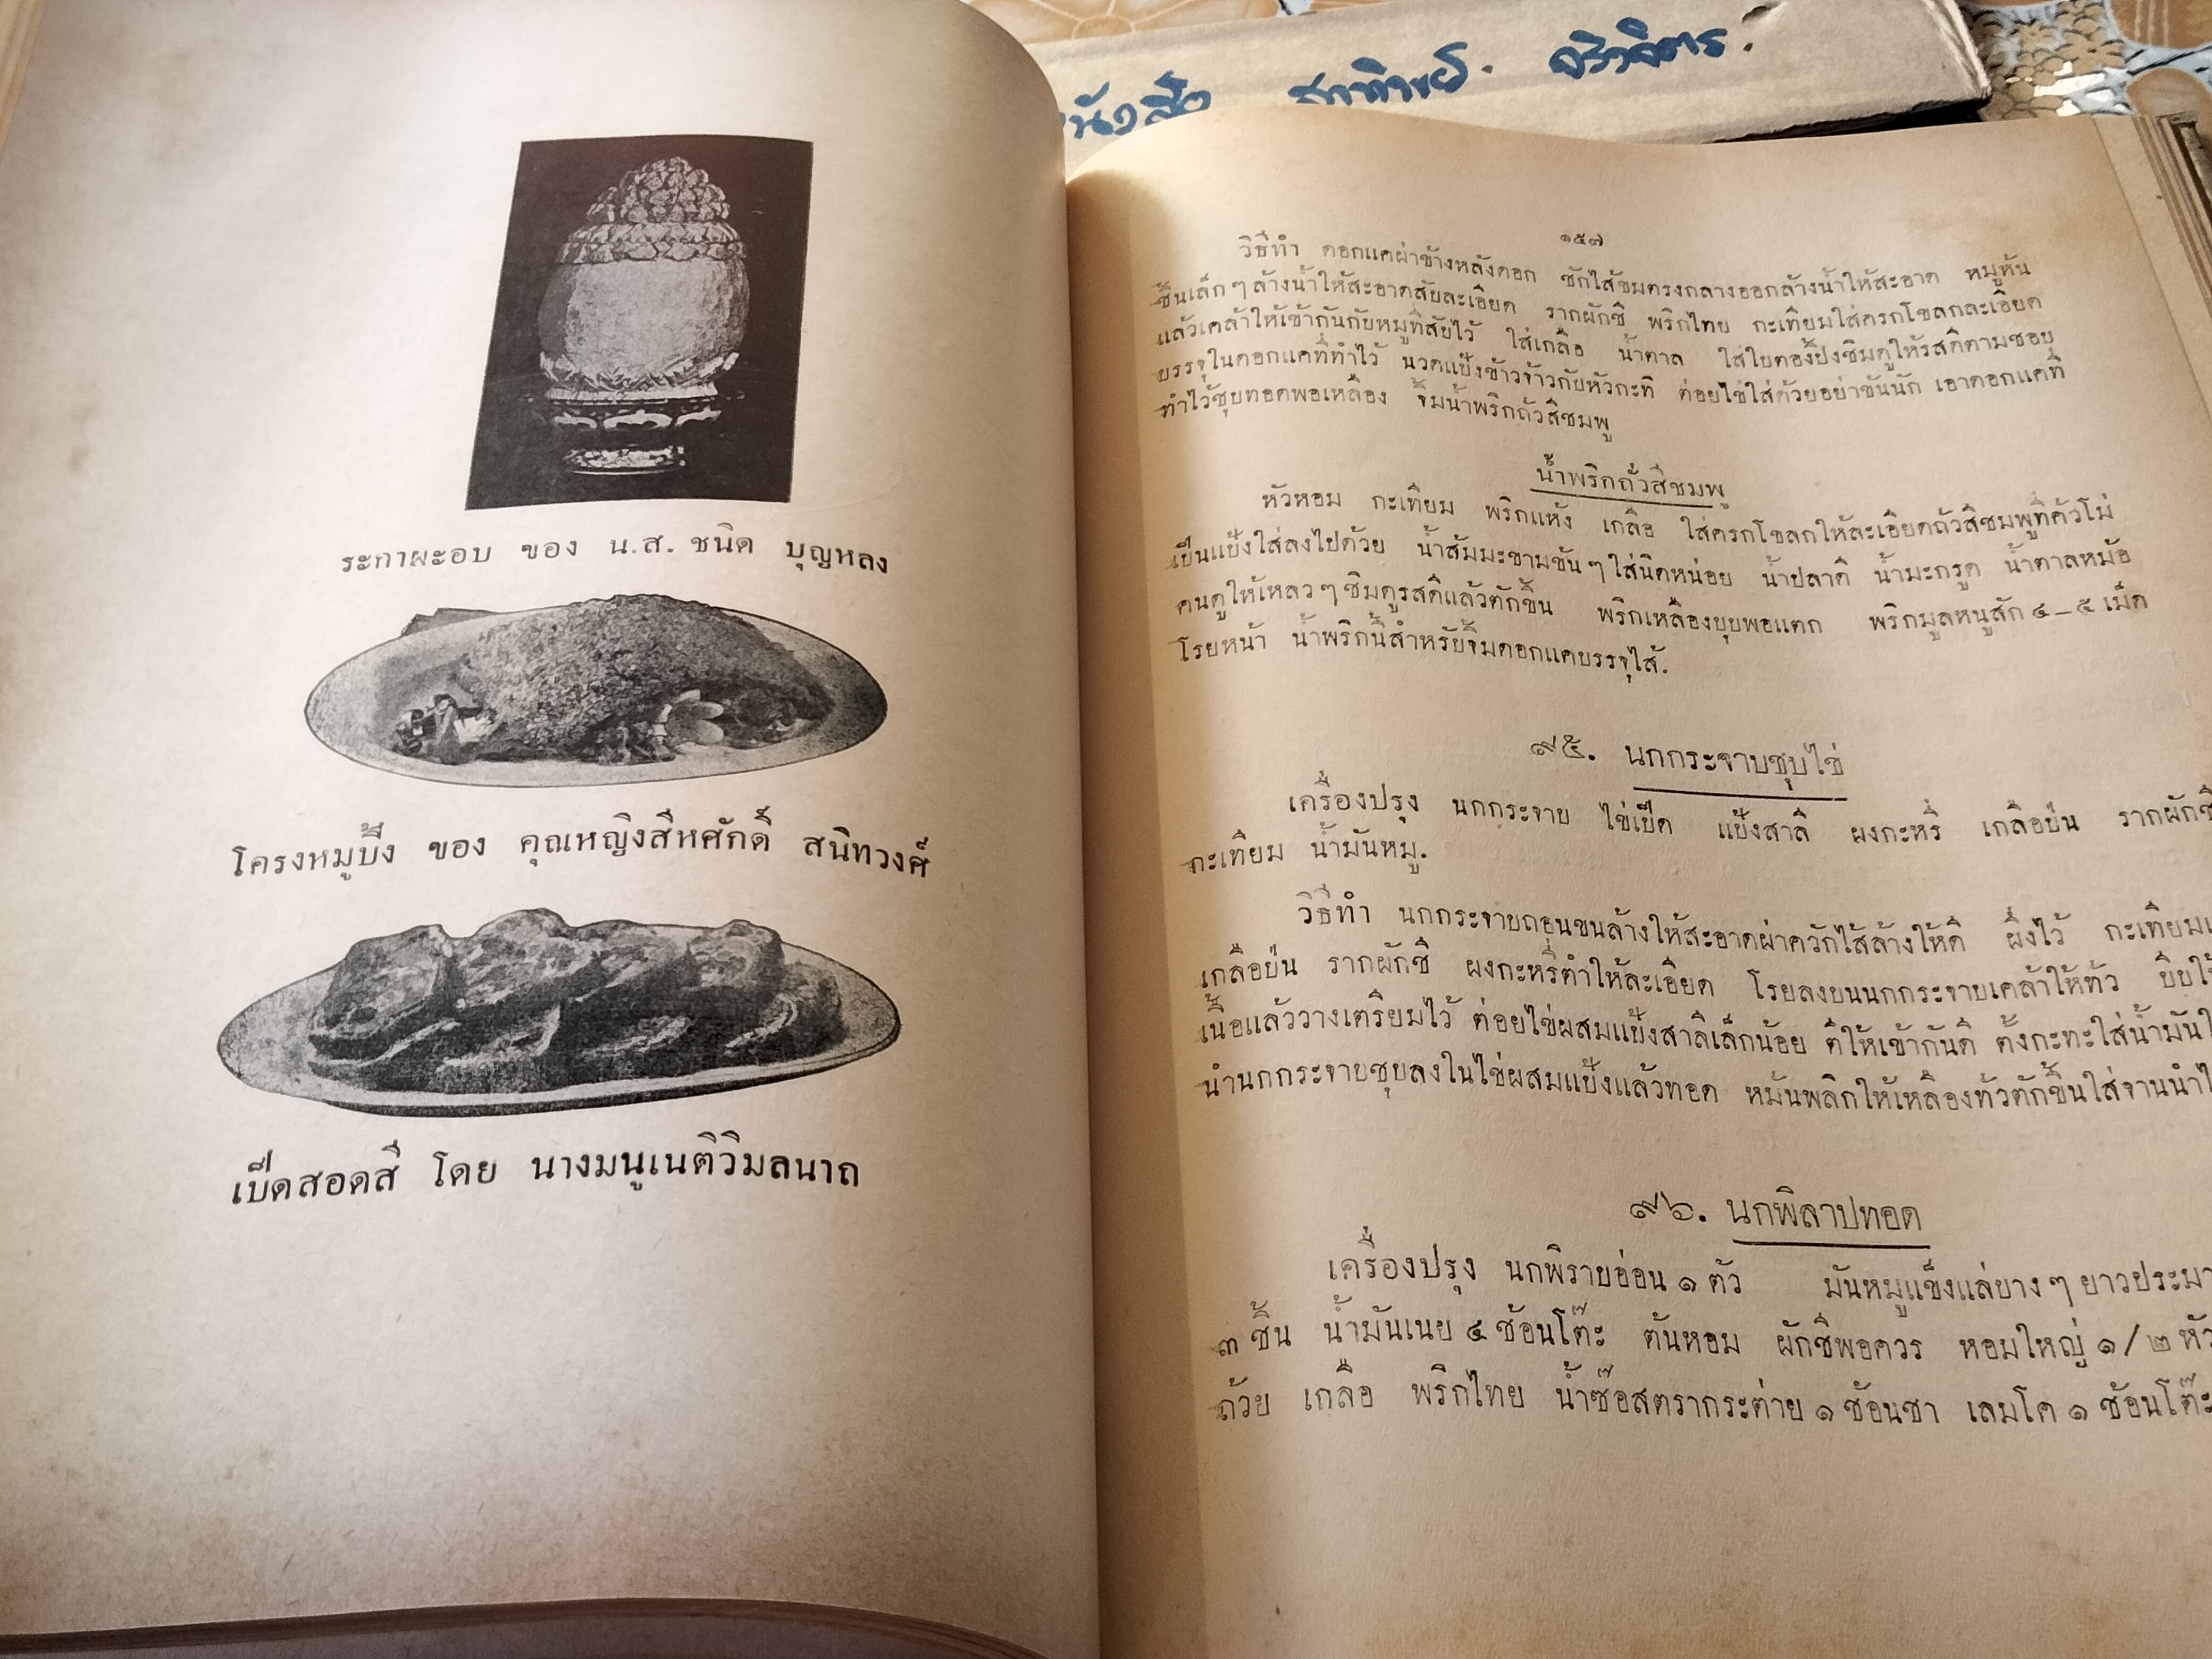 หนังสือ
ระกาผะอบ ของ น.ส. ชนิด บุญหลง
โครงหมูบึ้ง ของ คุณหญิงสีหศักดิ์ สนิทวงศ์
เป็ดสอดสี โดย นางมนูเนติวิมลนาถ
๑๕๗
วิธีทำ ดอกแคผ่าข้างหลังดอก ชักไส้ขมตรงกลางออกล้างน้ำให้สะอาด หมูหั่น
ชิ้นเล็ก ๆ ล้างน้ำให้สะอาดสับละเอียด รากผักชี พริกไทย กะเทียมใส่ครกโขลกละเอียด
แล้วเคล้าให้เข้ากันกับหมูที่สับไว้ ใส่เกลือ น้ำตาล ใส่ใบตองปิ้งชิมดูให้รสดีตามชอบ
บรรจุในดอกแคที่ทำไว้ นวดแป้งข้าวจ้าวกับหัวกะทิ ต่อยไข่ใส่ด้วยอย่าข้นนัก เอาดอกแคที่
ทำไว้ชุบทอดพอเหลือง จิ้มน้ำพริกถั่วสีชมพู
น้ำพริกถั่วสีชมพู
หัวหอม กะเทียม พริกแห้ง เกลือ ใส่ครกโขลกให้ละเอียดถั่วสีชมพูที่คั่วโม่
เป็นแป้งใส่ลงไปด้วย น้ำส้มมะขามข้น ๆ ใส่นิดหน่อย น้ำปลาดี น้ำมะกรูด น้ำตาลหม้อ
คนดูให้เหลว ๆ ชิมดูรสดีแล้วตักขึ้น พริกเหลืองบุบพอแตก พริกมูลหนูสัก ๔ – ๕ เม็ด
โรยหน้า น้ำพริกนี้สำหรับจิ้มดอกแคบรรจุไส้.
๙๕. นกกระจาบชุบไข่
เครื่องปรุง นกกระจาบ ไข่เป็ด แป้งสาลี ผงกะหรี่ เกลือป่น รากผักชี
กะเทียม น้ำมันหมู.
วิธีทำ นกกระจาบถอนขนล้างให้สะอาดผ่าควักไส้ล้างให้ดี ผึ่งไว้ กะเทียม
เกลือป่น รากผักชี ผงกะหรี่ตำให้ละเอียด โรยลงบนนกกระจาบเคล้าให้ทั่ว บีบให้
เนื้อแล้ววางเตรียมไว้ ต่อยไข่ผสมแป้งสาลีเล็กน้อย ตีให้เข้ากันดี ตั้งกะทะใส่น้ำมัน
นำนกกระจาบชุบลงในไข่ผสมแป้งแล้วทอด หมั่นพลิกให้เหลืองทั่วตักขึ้นใส่จานนำ
๙๖. นกพิลาปทอด
เครื่องปรุง นกพิราบอ่อน ๑ ตัว มันหมูแข็งแล่บาง ๆ ยาวประมา
๓ ชิ้น น้ำมันเนย ๔ ช้อนโต๊ะ ต้นหอม ผักชีพอควร หอมใหญ่ ๑/๒ หัว
ถ้วย เกลือ พริกไทย น้ำซ๊อสตรากระต่าย ๑ ช้อนชา เลมโค ๑ ช้อนโต๊ะ